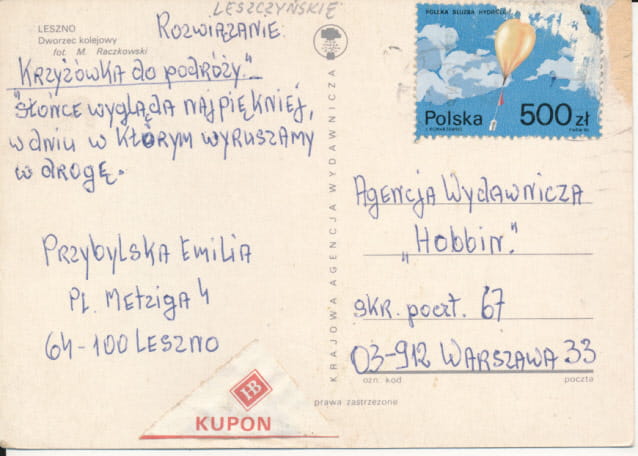 LESZCZYŃSKIE
LESZNO
Dworzec kolejowy
fot. M. Raczkowski
ROZWIĄZANIE:
KRZYŻÓWKA do podróży"
"SŁOŃCE WYGLĄDA NAJPIĘKNIEJ,
W DNIU W KTÓRYM WYRUSZAMY
W DROGĘ.
PRZYBYLSKA EMILIA
PL. METZIGA 4
64-100 LESZNO
HB
KUPON
KRAJOWA AGENCJA WYDAWNICZA
POLSKA SŁUŻBA HYDROL
Polska 500 zł
AGENCJA WYDAWNICZA
„HOBBIN."
SKR. poczt. 67
03-912 WARSZAWA 33
ozn. kod poczta
prawa zastrzeżone